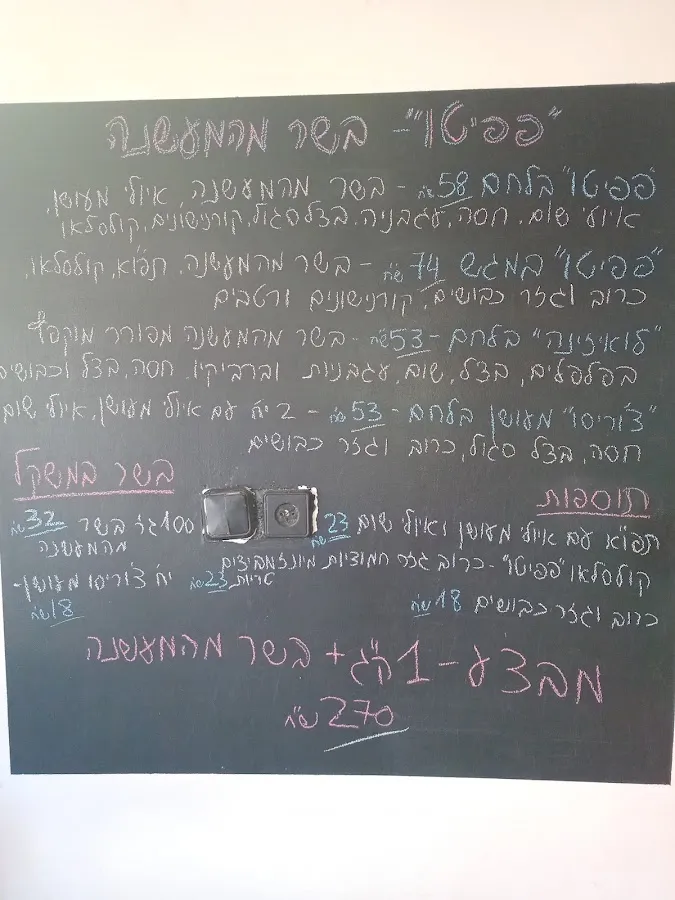 "פפיטו"- בשר מהמעשנה
"פפיטו" בלחם 58 ש"ח - בשר מהמעשנה, איולי מעושן,
איולי שום, חסה, עגבניה, בצל סגול, קורנישונים, קולסלאו
"פפיטו" במגש 74 ש"ח - בשר מהמעשנה, תפו"א, קולסלאו,
כרוב וגזר כבושים, קורנישונים ורטבים
בלחם - 53 ש"ח - בשר מהמעשנה מפורר מוקפץ
בפלפלים, בצל, שום, עגבניות וברביקיו. חסה, בצל וכבושים
"צ'וריסו" מעושן בלחם - 53 ש"ח - 2 יח' עם איולי מעושן, איולי שום
חסה, בצל סגול, כרוב וגזר כבושים
תוספות
תפו"א עם איולי מעושן ואיולי שום 23 ש"ח
קולסלאו "פפיטו" - כרוב גזר חמוציות
טריות 23 ש"ח
כרוב וגזר כבושים 18 ש"ח
בשר במשקל
100 גר' בשר 32 ש"ח
מהמעשנה
יח' צ'וריסו מעושן -
18 ש"ח
מבצע - 1 ק"ג + בשר מהמעשנה
270 ש"ח